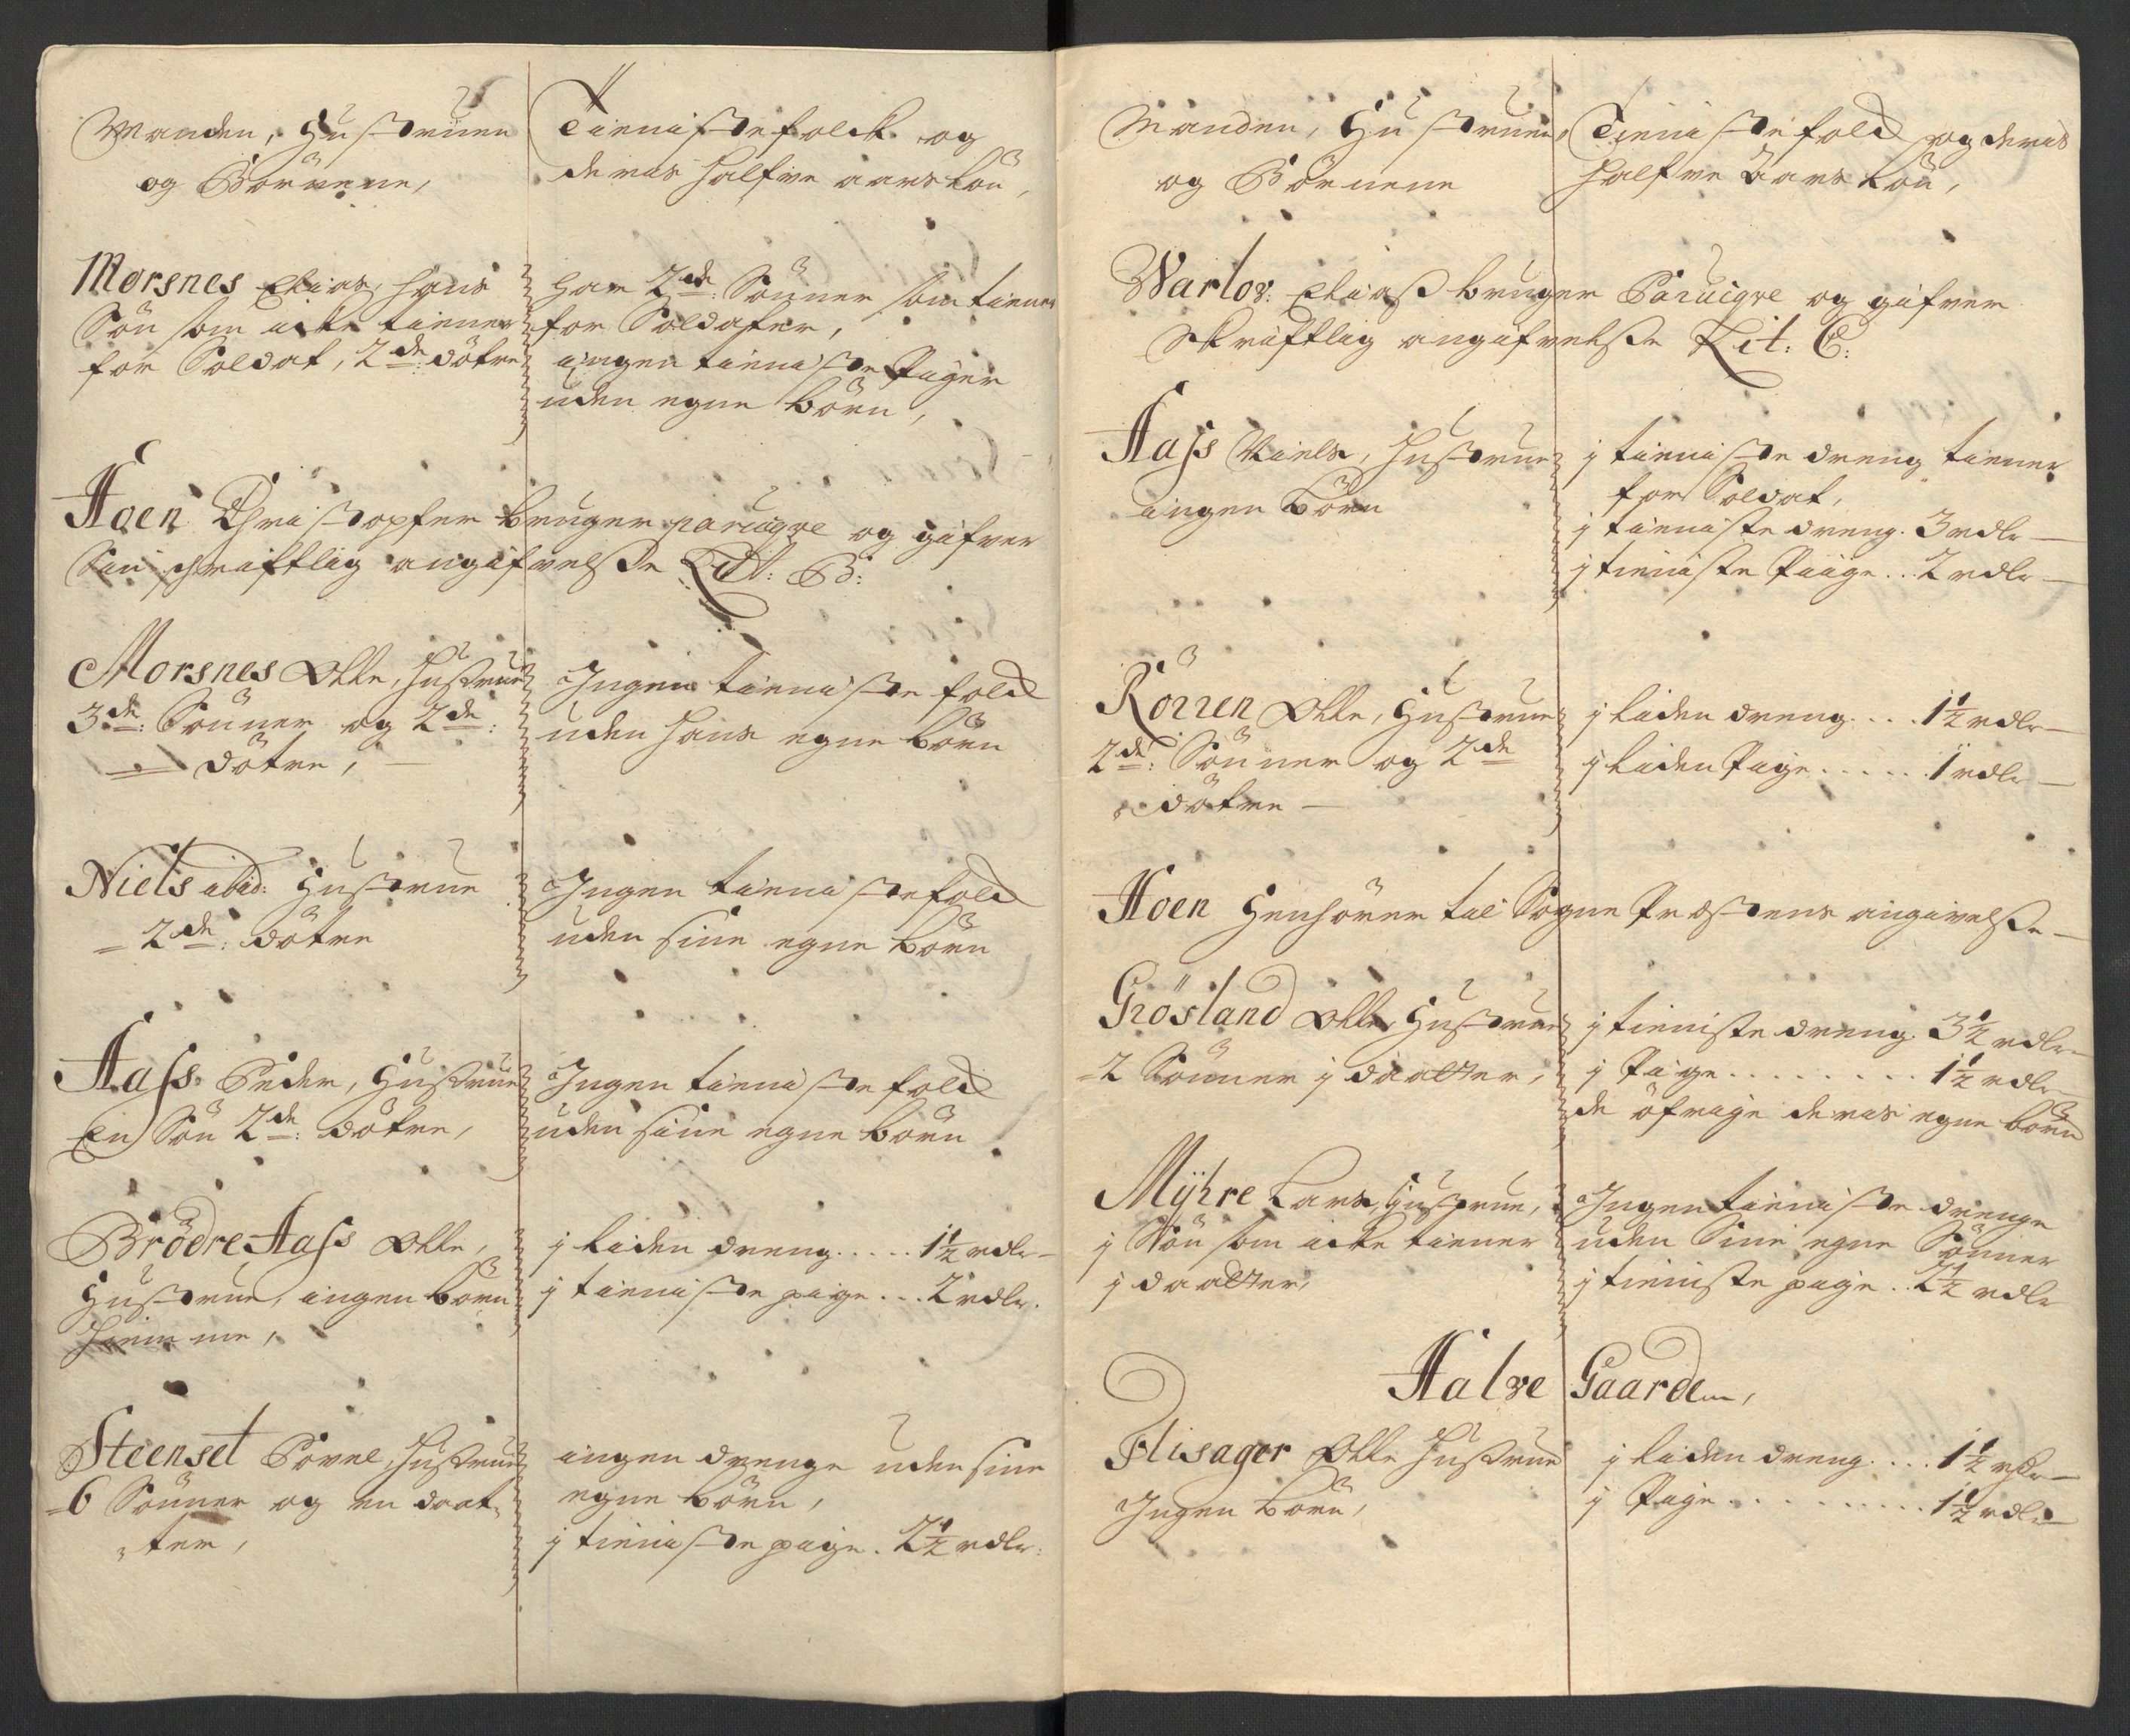 Manden, Hustruen
og Börnene,
Tienistefolck og
deris halfve aars Lön,
Morsnes Elias, hans
Sön som icke tiener
for Soldat, 2de: dötre
har 2de: Sönner som tiener
for Soldater,
ingen tieniste Piger
uden egne börn,
Hoen Christopher bruger paruiqve og gifver
Sin schriftlig angifvelsse Lit: B:
Morsnes Olle, Hustrue
3de: Sönner og 2de:
dötre,
Ingen tieniste folck
uden hans egne börn
Niels ibid: Hustrue
2de: dötre
Ingen tienistefolck
uden sine egne börn
Aass Peder, Hustrue
En Sön 2de: dötre,
Ingen tieniste folck
uden sine egne börn
Brödre Aass Olle,
Hustrue, ingen börn
hiemme,
j liden dreng ..... 1½ rdlr
j tieniste pige ... 2 rdlr.
Steenset Povel, Hustrue
6 Sönner og en daat-
ter,
ingen drenge uden sine
egne börn,
j tieniste pige . 2½ rdlr:
Manden, Hustruen,
og Börnene
Tieniste folck og deris
halfve Aars Lön,
Warlos: Elias bruger Paruiqve og gifver
Skriftlig angifvelsse Lit: C:
Aass Niels, Hustrue
ingen börn
j tieniste dreng tiener
for Soldat,
j tieniste dreng. 3 rdlr
j tieniste Piige .. 2 rdlr
Rörren Olle, Hustrue
2de: Sönner og 2de
dötre
j liden dreng .... 1½ rdlr
j liden Pige ..... 1 rdlr
Hoen Henhörer til Sogne Præstens angivelsse
Grösland Olle, Hustrue
2 Sönner j daatter,
j tieniste dreng. 3½ rdlr
j Pige ........ 1½ rdlr
de öfrige deris egne börn
Mÿhre Lars, Hustrue,
j Sön som icke tiener
j daatter,
Ingen tieniste drenge
uden Sine egne Sönner
j tieniste pige . 2½ rdlr
Halve Gaarde,
Flisager Olle Hustrue
Ingen börn,
j liden dreng .... 1½ rdlr
j Pige .......... 1½ rdlr